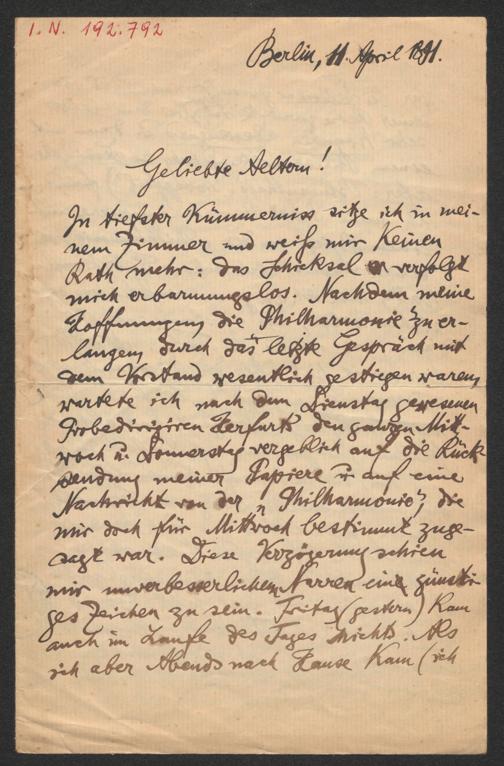 I. N. 192.792
Berlin, 11. April 1891.
Geliebte Aeltern!
In tiefster Kümmerniss sitze ich in mei-
nem Zimmer und weiß mir keinen
Rath mehr: das Schicksal verfolgt
mich erbarmungslos. Nachdem meine
Hoffnungen, die „Philharmonie" zu er-
langen, durch das letzte Gespräch mit
dem Vorstand wesentlich gestiegen waren,
wartete ich nach dem Dienstag gewesenen
Probedirigiren Herfurts den ganzen Mitt-
woch u. Donnerstag vergeblich auf die Rück-
sendung meiner Papiere u. auf eine
Nachricht von der „Philharmonie", die
mir doch für Mittwoch bestimmt zuge-
sagt war. Diese Verzögerung schien
mir unverbesserlichen Narren ein günsti-
ges Zeichen zu sein. Freitag (gestern) kam
auch im Laufe des Tages Nichts. Als
ich aber Abends nach Hause kam (ich